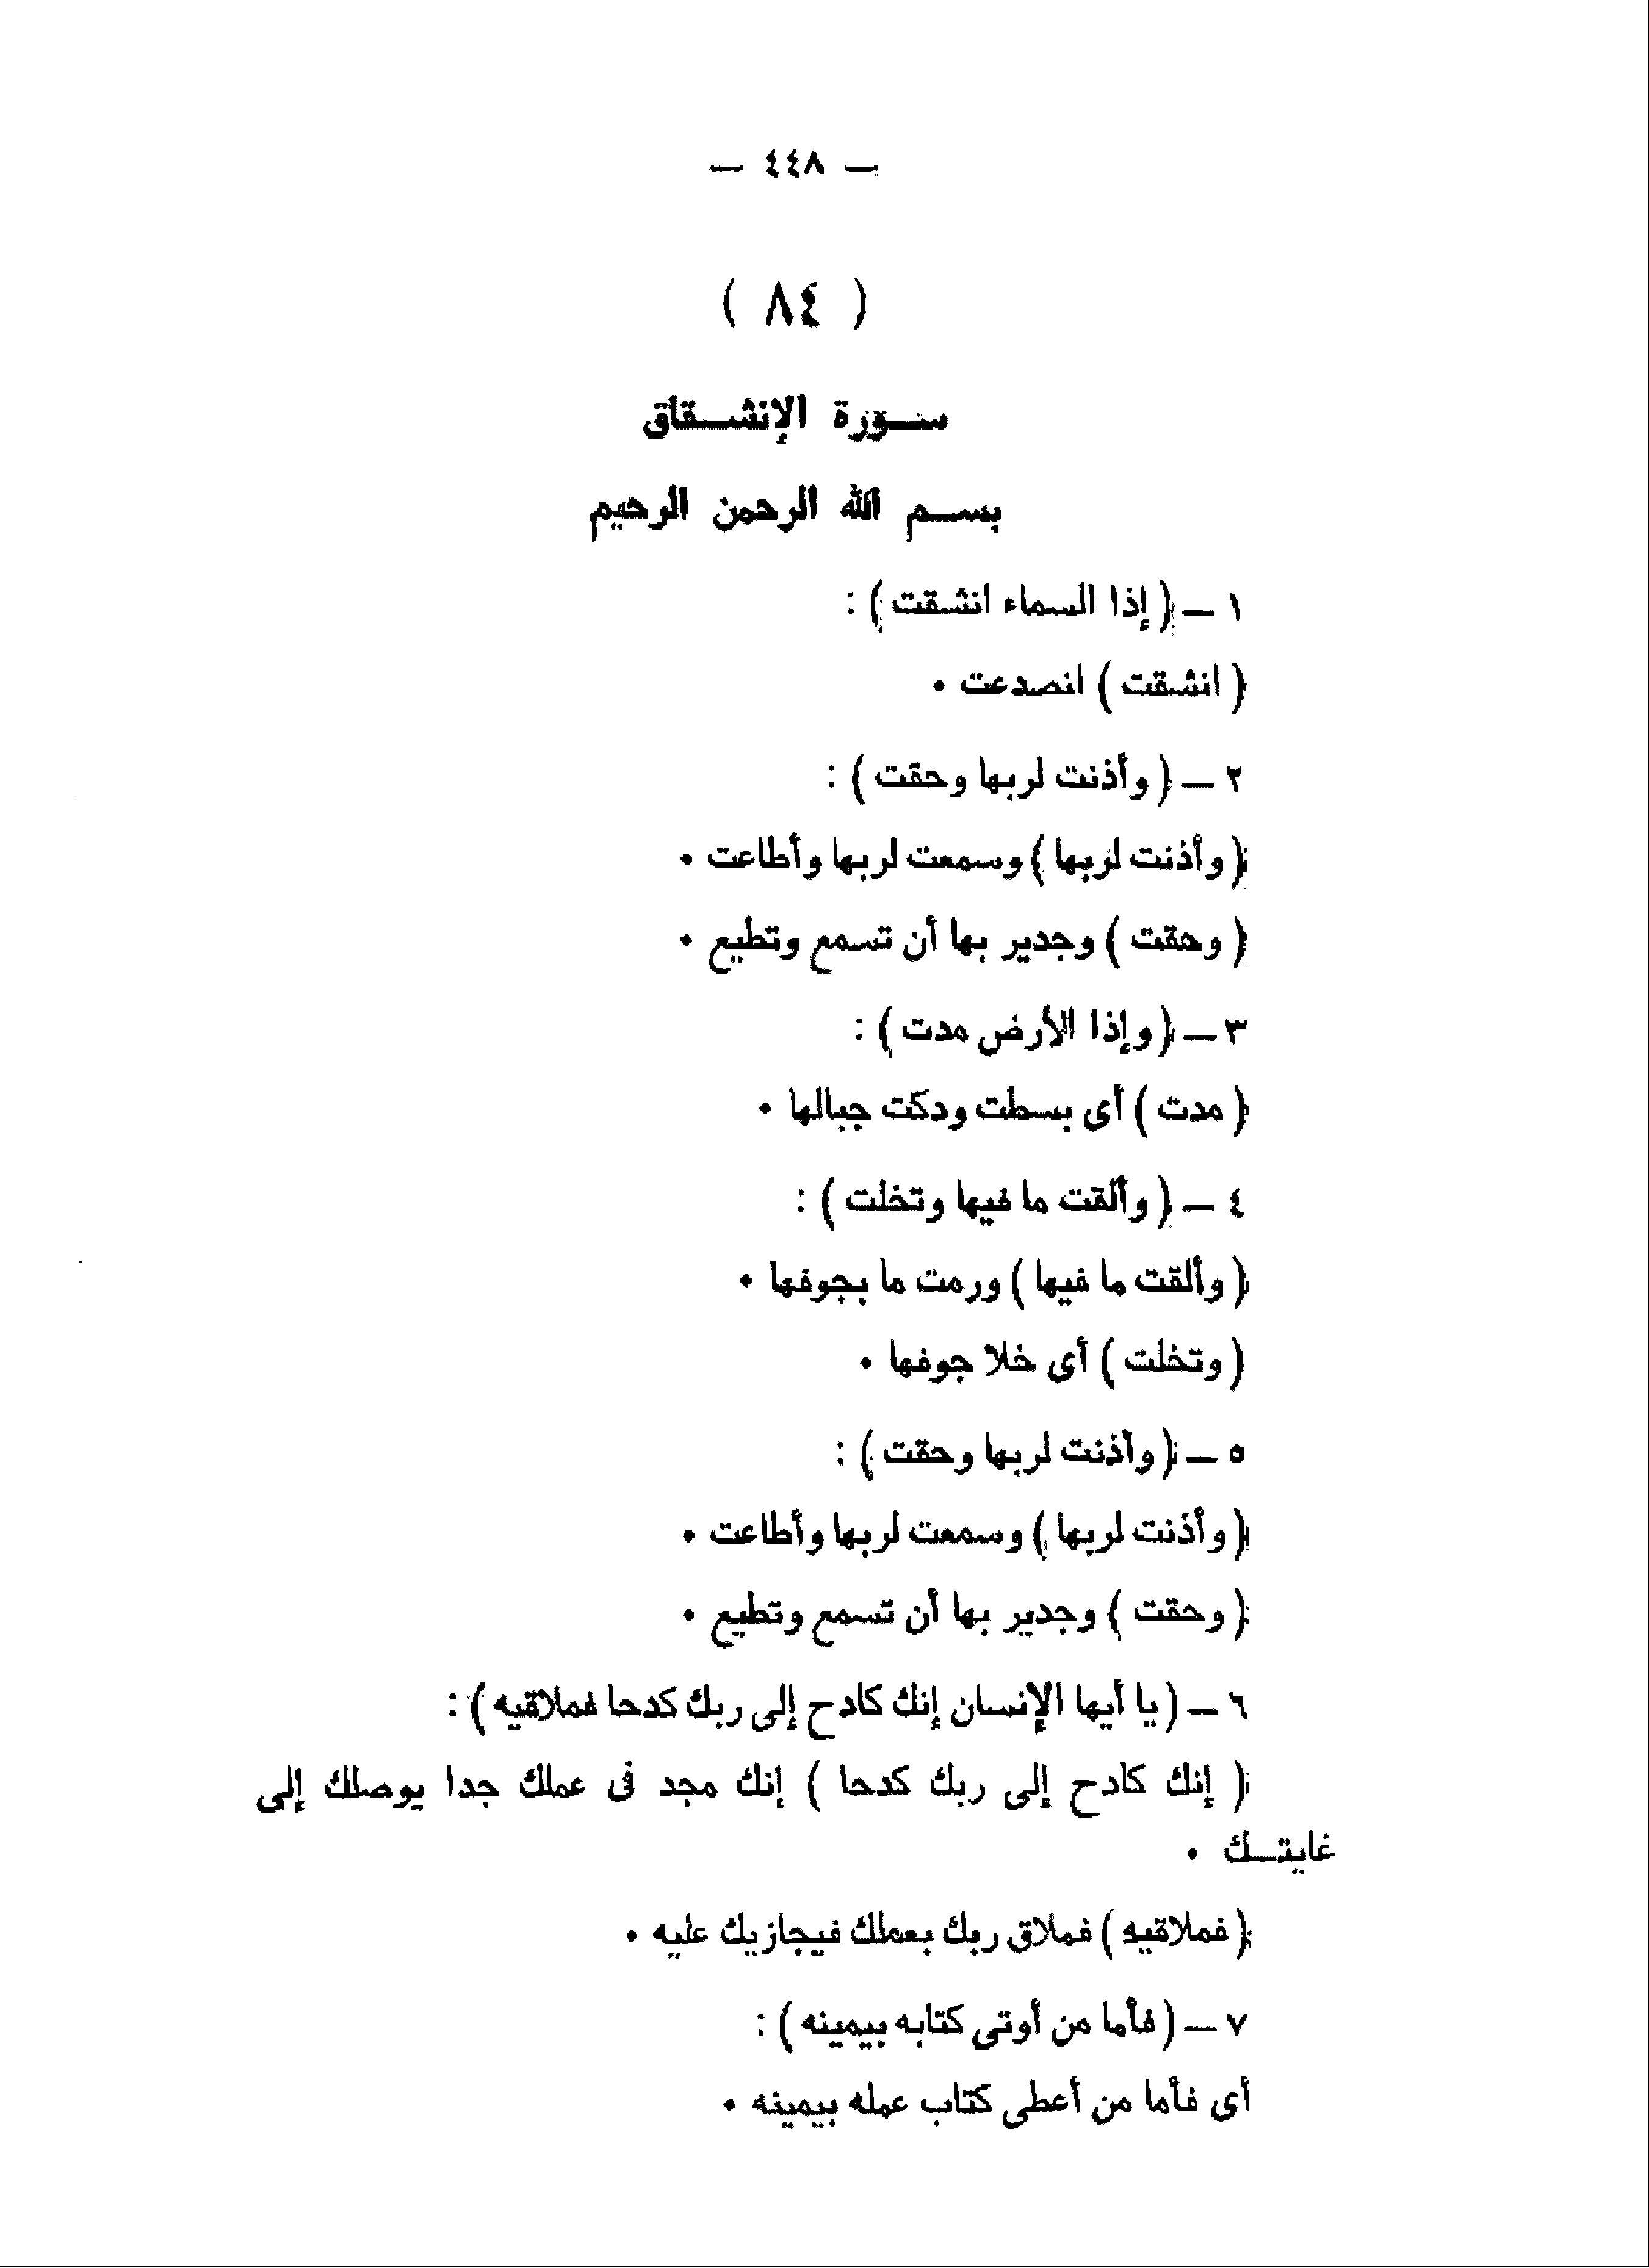 — ٤٤٨ —
( ٨٤ )
ســورة الإنشــقاق
بســم الله الرحمن الرحيم
١ — ( إذا السماء انشقت ) :
( انشقت ) انصدعت ٠
٢ — ( وأذنت لربها وحقت ) :
( وأذنت لربها ) وسمعت لربها وأطاعت ٠
( وحقت ) وجدير بها أن تسمع وتطيع ٠
٣ — ( وإذا الأرض مدت ) :
( مدت ) أى بسطت ودكت جبالها ٠
٤ — ( وألقت ما فيها وتخلت ) :
( وألقت ما فيها ) ورمت ما بجوفها ٠
( وتخلت ) أى خلا جوفها ٠
٥ — ( وأذنت لربها وحقت ) :
( وأذنت لربها ) وسمعت لربها وأطاعت ٠
( وحقت ) وجدير بها أن تسمع وتطيع ٠
٦ — ( يا أيها الإنسان إنك كادح إلى ربك كدحا فملاقيه ) :
( إنك كادح إلى ربك كدحا ) إنك مجد فى عملك جدا يوصلك إلى
غايتــك ٠
( فملاقيه ) فملاق ربك بعملك فيجازيك عليه ٠
٧ — ( فأما من أوتى كتابه بيمينه ) :
أى فأما من أعطى كتاب عمله بيمينه ٠